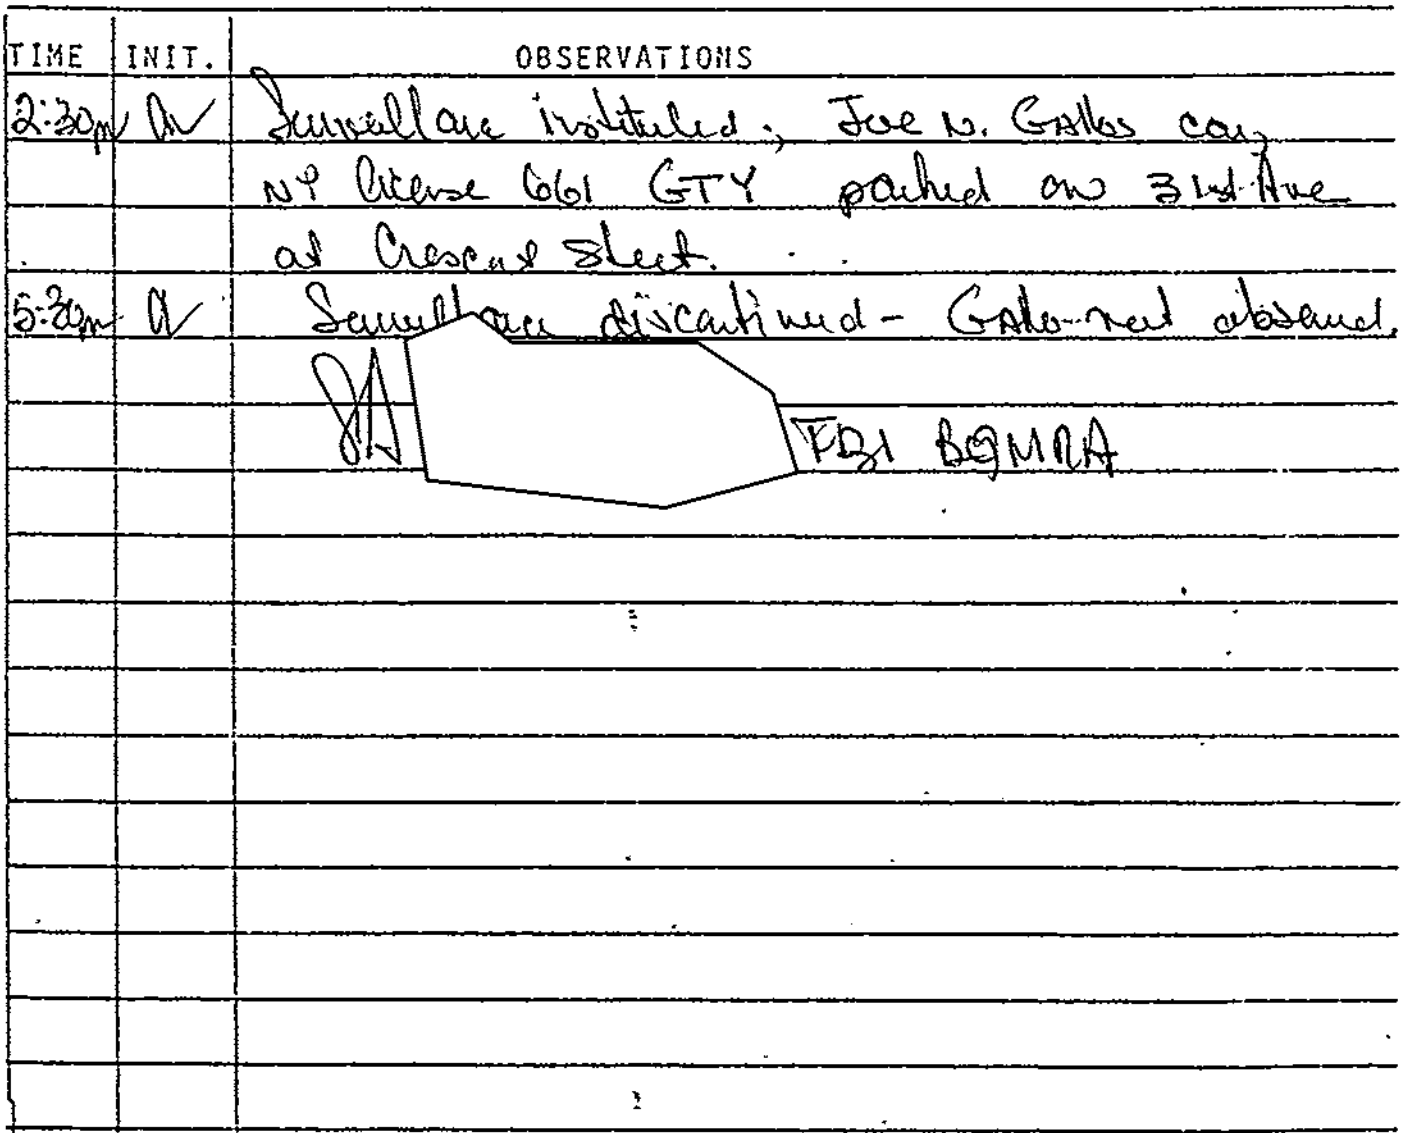 TIME INIT. OBSERVATIONS
2:30pm Surveillance instituted; Joe N. Gallos car,
NY license 661 GTY parked on 31st Ave
at Crescent Street.
5:30pm Surveillance discontinued - Gallo not observed.
SA FBI BQMRA